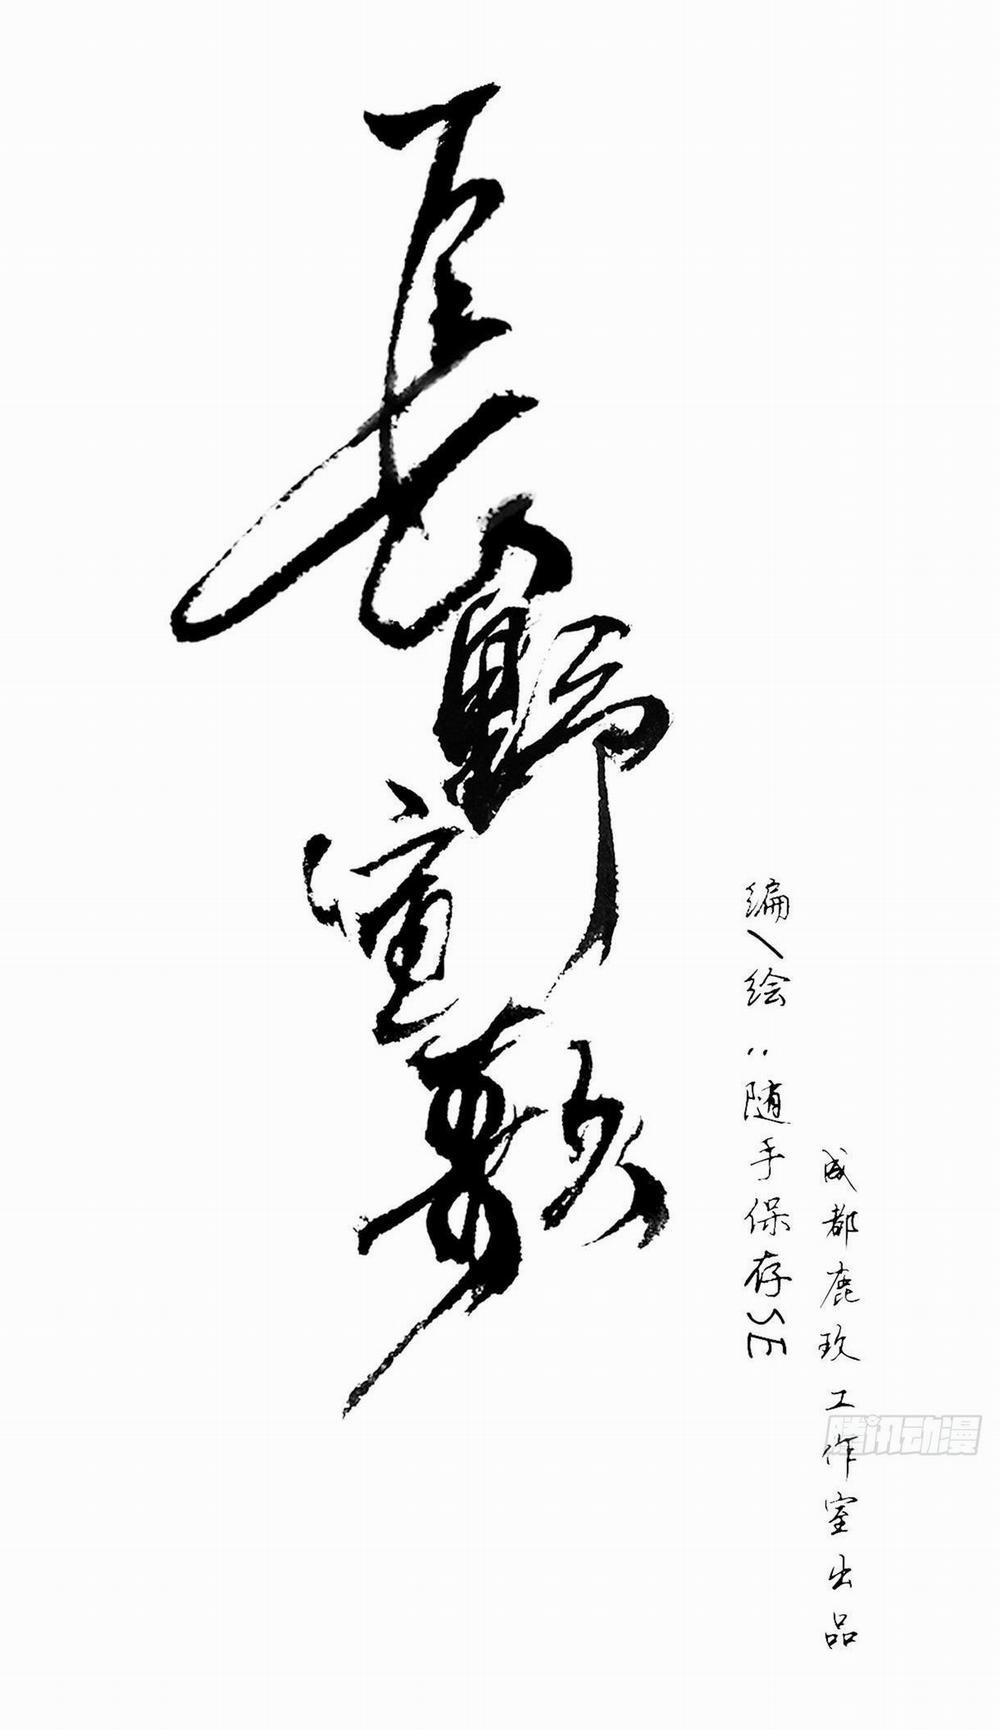 長野萱敖
编/绘：随手保存SE
成都鹿玖工作室出品
腾讯动漫